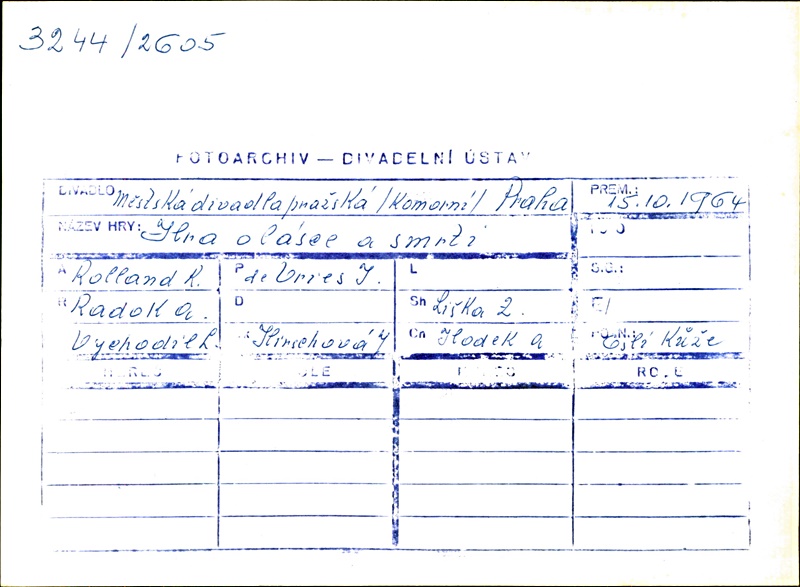 3244/2605
FOTOARCHIV — DIVADELNÍ ÚSTAV
DIVADLO Městská divadla pražská /Komorní/ Praha PREM.: 15.10.1964
NÁZEV HRY: Hra o lásce a smrti
A Rolland R. P de Vries J. L S.G.:
R Radok A. D Sh Liška Z. E/
Vychodil L. Hirschová J Cn Hodek A
ROLE